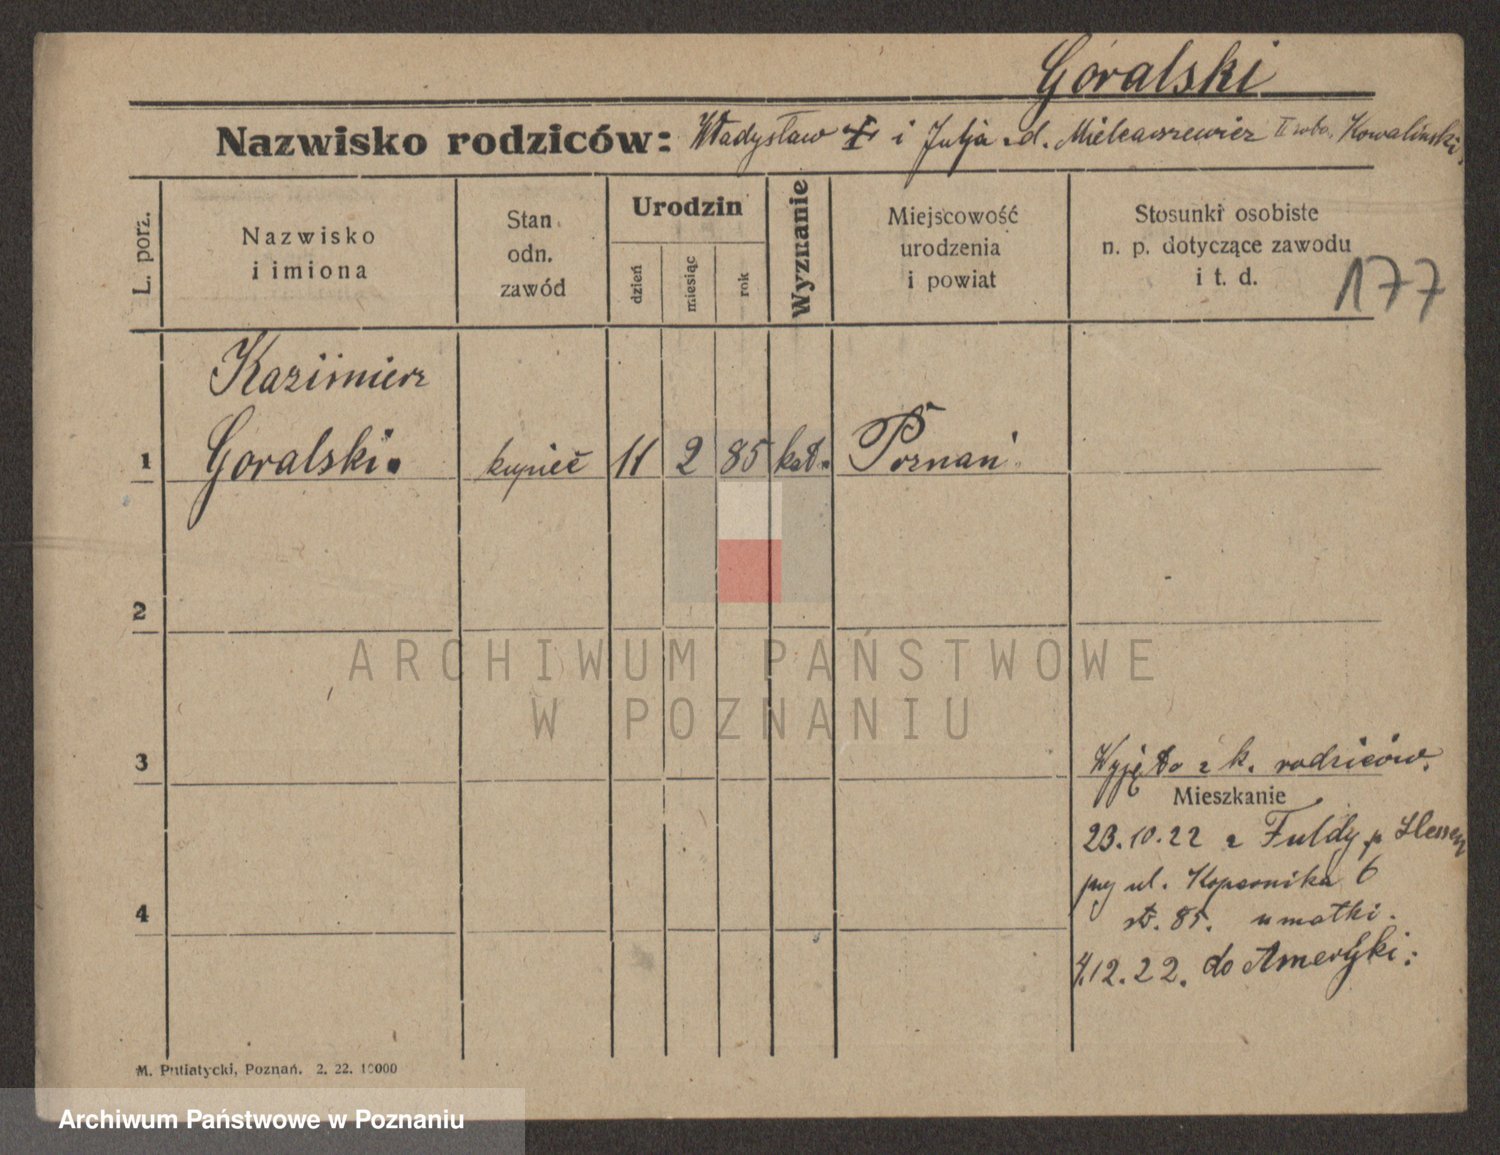 Góralski
Nazwisko rodziców: Władysław ‡ i Julja z d. Mielcarzewicz II voto. Kowalińska
L. porz.
Nazwisko
i imiona
Stan
odn.
zawód
Urodzin
dzień
miesiąc
rok
Wyznanie
Miejscowość
urodzenia
i powiat
Stosunki osobiste
n. p. dotyczące zawodu
i t. d.
177
Kazimierz
1 Góralski. kupiec 11 2 85 kat. Poznań
2
3
Wyjęto z k. rodziców.
Mieszkanie
23.10.22 z Fuldy p Hessen
ul. Kopernika 6
st. 85. u matki.
4
4.12.22. do Ameryki.
M. Putiatycki, Poznań. 2. 22. 10000
ARCHIWUM PAŃSTWOWE
W POZNANIU
Archiwum Państwowe w Poznaniu